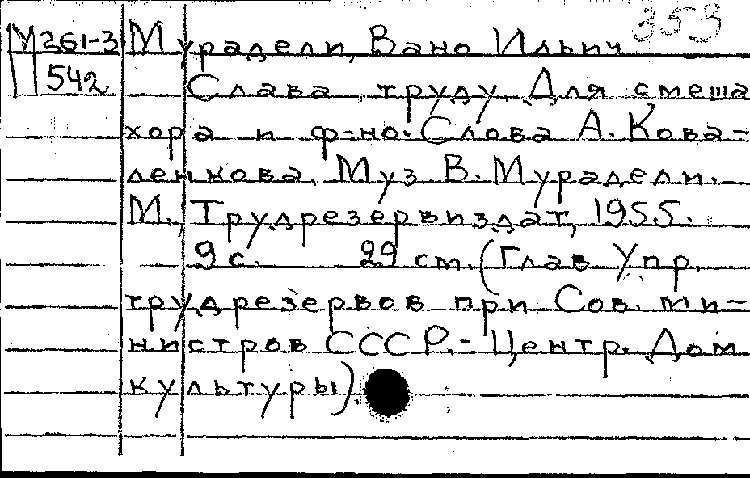 М 361-3 Мурадели, Вано Ильич 353
542 Слава труду. Для смеша
хора и ф-но. Слова А. Кова-
ленкова. Муз В. Мурадели.
М., Трудрезервиздат, 1955.
9 с. 29 ст. (Глав Упр.
трудрезервов при Сов. ми-
нистров СССР.- Центр. Дом
культуры).